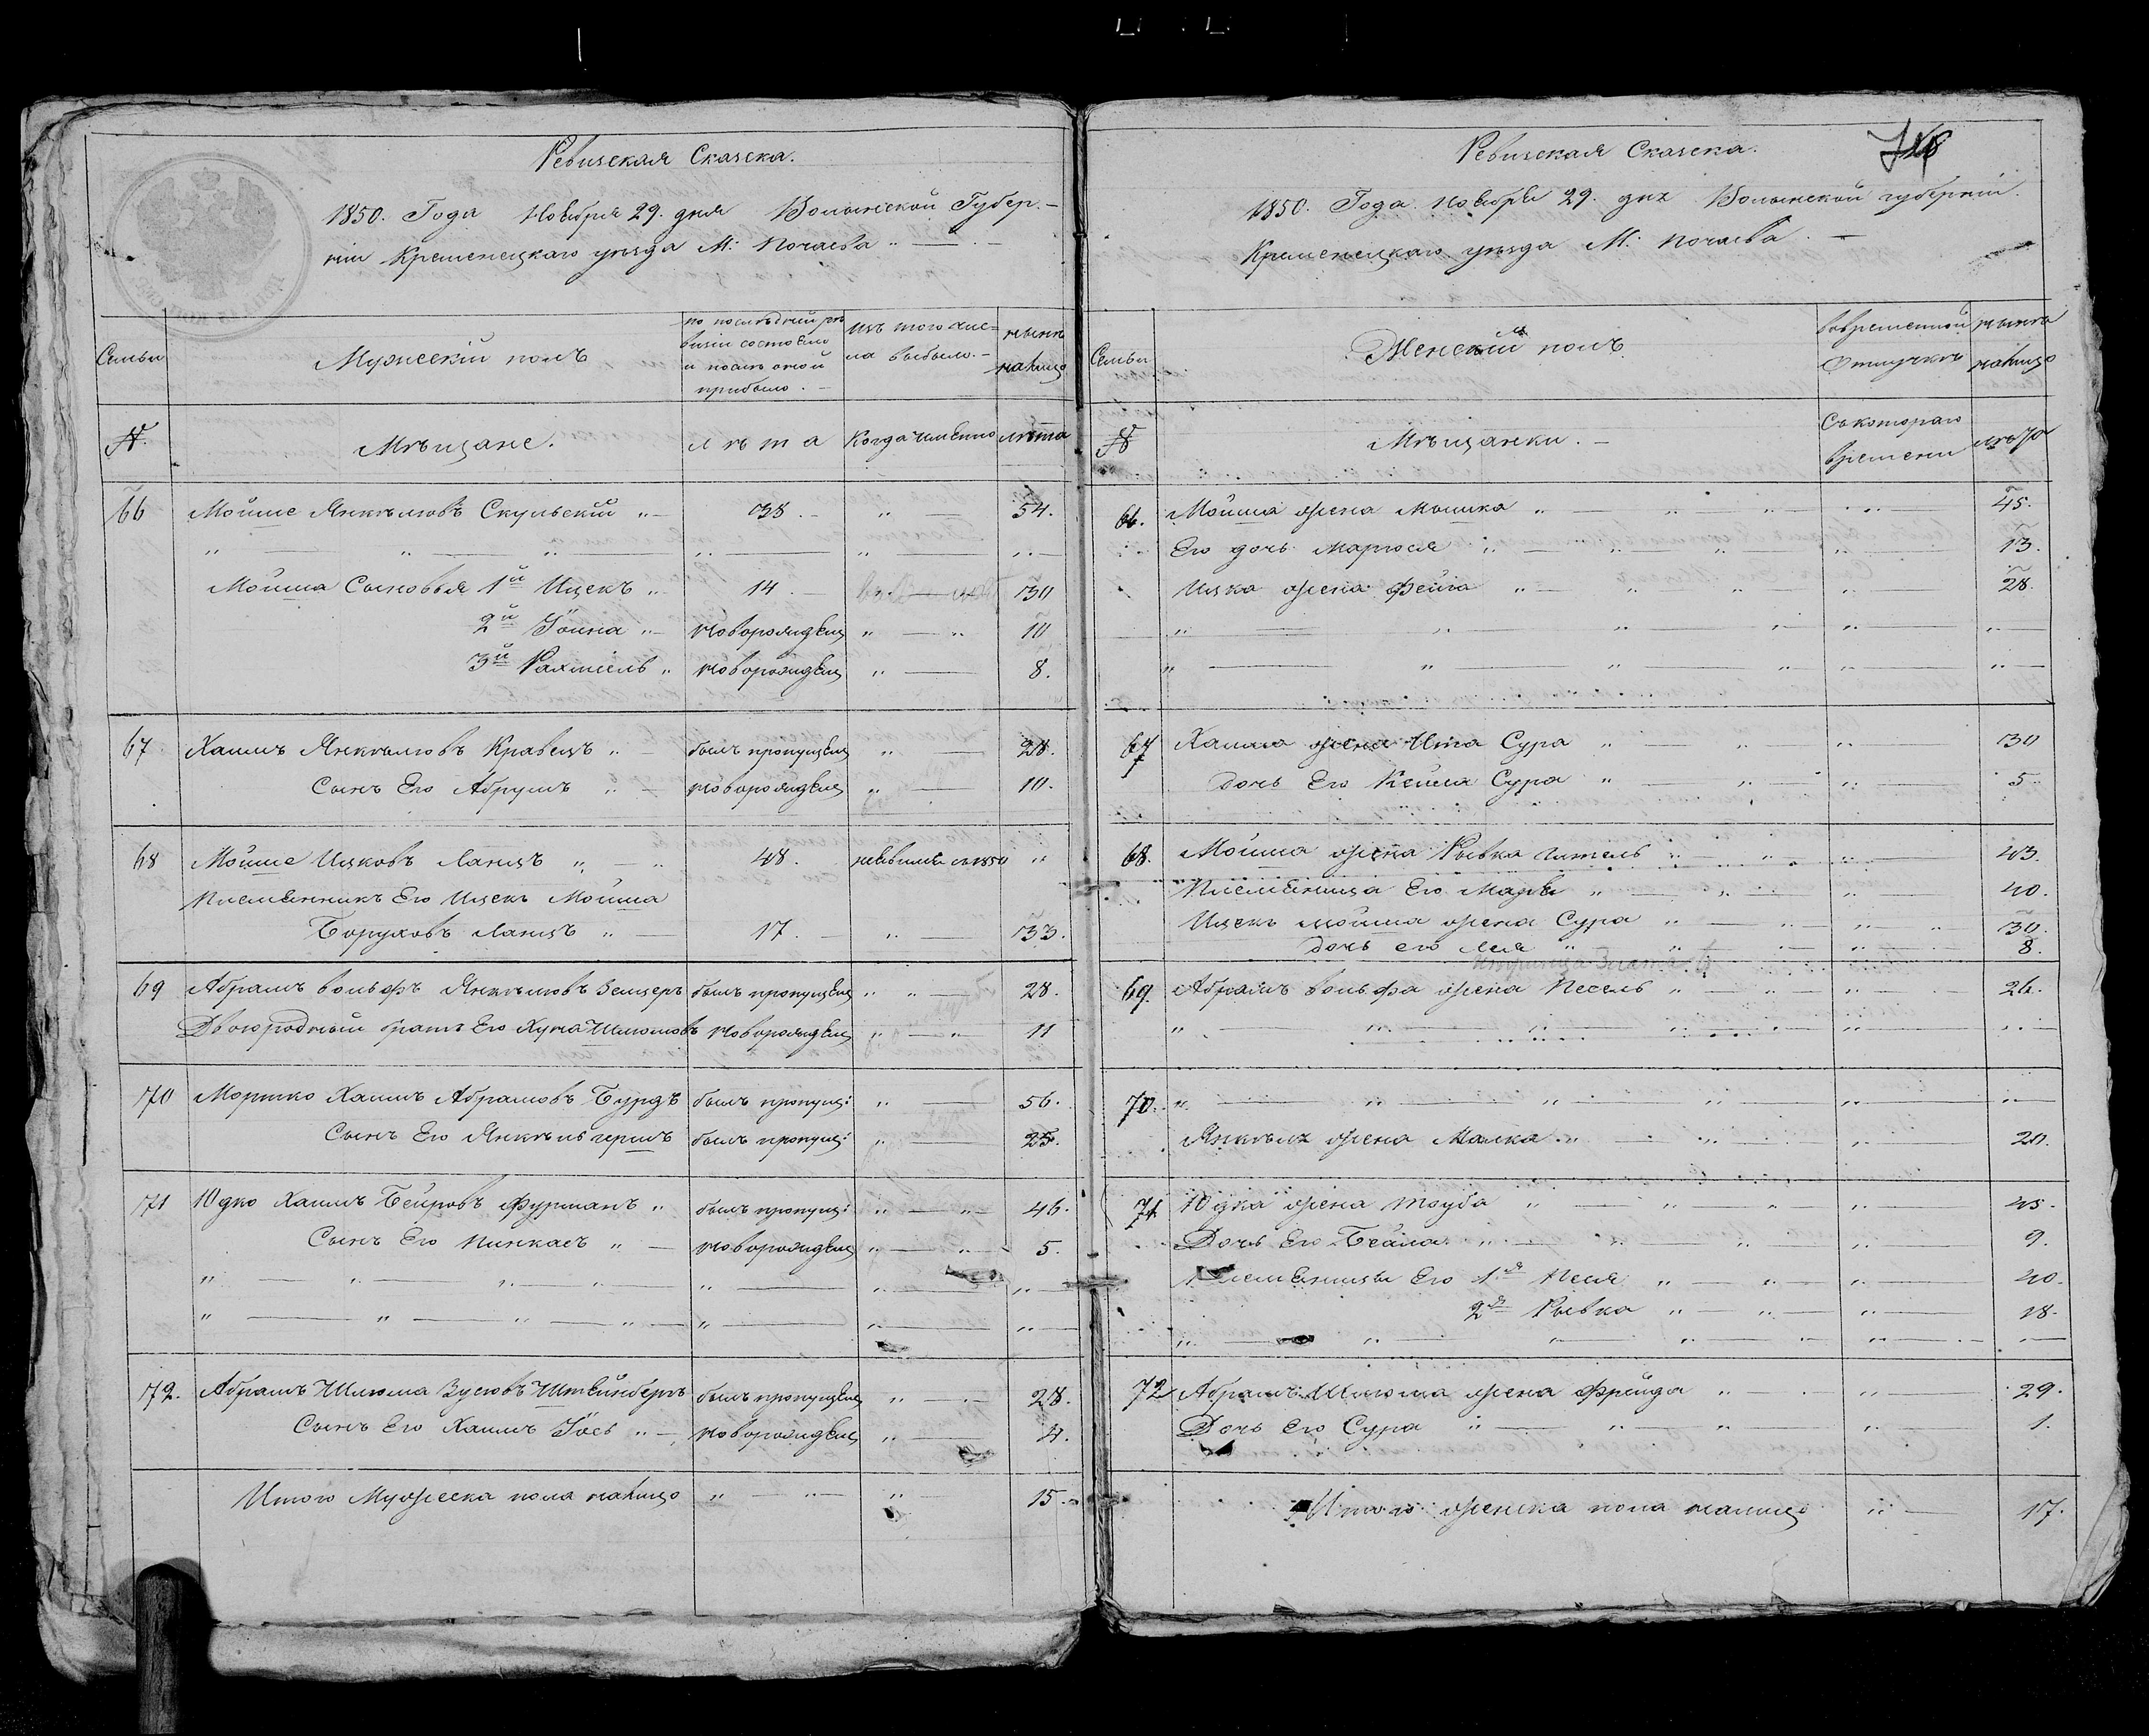 Ревизская Сказска.
1850. Года Ноября 29. дня Волынской Губер-
нии Кременецкаго уѣзда М: Почаева
Семьи
Мужескій полъ
по послѣдней ре
визіи состояло
и послѣ оной
прибыло.
Изъ того чис-
ла выбыло.
нынѣ
налицо
№.
Мѣщане.
лѣта
Когда именно
лѣта
66 Мойше Янкелювъ Скульскій 38. 54.
Мойша Сыновья 1й Ицекъ 14. 30
2й Іойна новорожден 10
3й Рахміель новорожден 8.
67 Хаимъ Янкелювъ Кравецъ былъ пропущен 28.
Сынъ Его Абрумъ новорожден 10.
68 Мойше Ицковъ Ланцъ 48.
Племенникъ Его Ицекъ Мойша
Боруховъ Ланцъ 17. 33.
69 Абрамъ Вольфъ Янкелювъ Зейгеръ былъ пропущен 28.
Двоюродный братъ Его Хуна Шлюмовъ новорожден 11
70 Мортко Хаимъ Абрамовъ Бурдъ былъ пропущ: 56.
Сынъ Его Янкель Гершъ былъ пропущ: 25.
71 Юдко Хаимъ Бейровъ Фурманъ былъ пропущ: 46.
Сынъ Его Пинкасъ новорожден 5.
72. Абрамъ Шлюма Зусювъ Штейнбергъ былъ пропущен 28.
Сынъ Его Хаимъ Іось новорожден 4.
Итого Мужеска пола налицо 15.
Ревизская Сказска.
1850. Года Ноября 29. дня Волынской губерніи.
Кременецкаго уѣзда М: Почаева
Семьи
Женскій полъ
во временной
отлучкѣ
нынѣ
налицо
№
Мѣщанки.
Съ котораго
времени
лѣта
66. Мойша жена Малка 45.
Его дочь Маріося 13.
Ицка жена Фейга 28.
67 Хаима жена Ита Сура 30
Дочь Его Кейла Сура 5
68. Мойша жена Рывка Гитель 43.
Племенница Его 40.
Ицекъ Мойша жена Сура 30.
Дочь его Лея 8.
69. Абрамъ Вольфа жена Песель 26.
70.
Янкеля жена Малка 20.
71. Юдка жена Тауба 45.
Дочь Его Бейла 9.
Племенницы Его 1я Песя 40.
2я Рывка 18.
72 Абрамъ Шлюма жена Фрейда 29.
Дочь Его Сура 1.
Итого женска пола налицо 17.